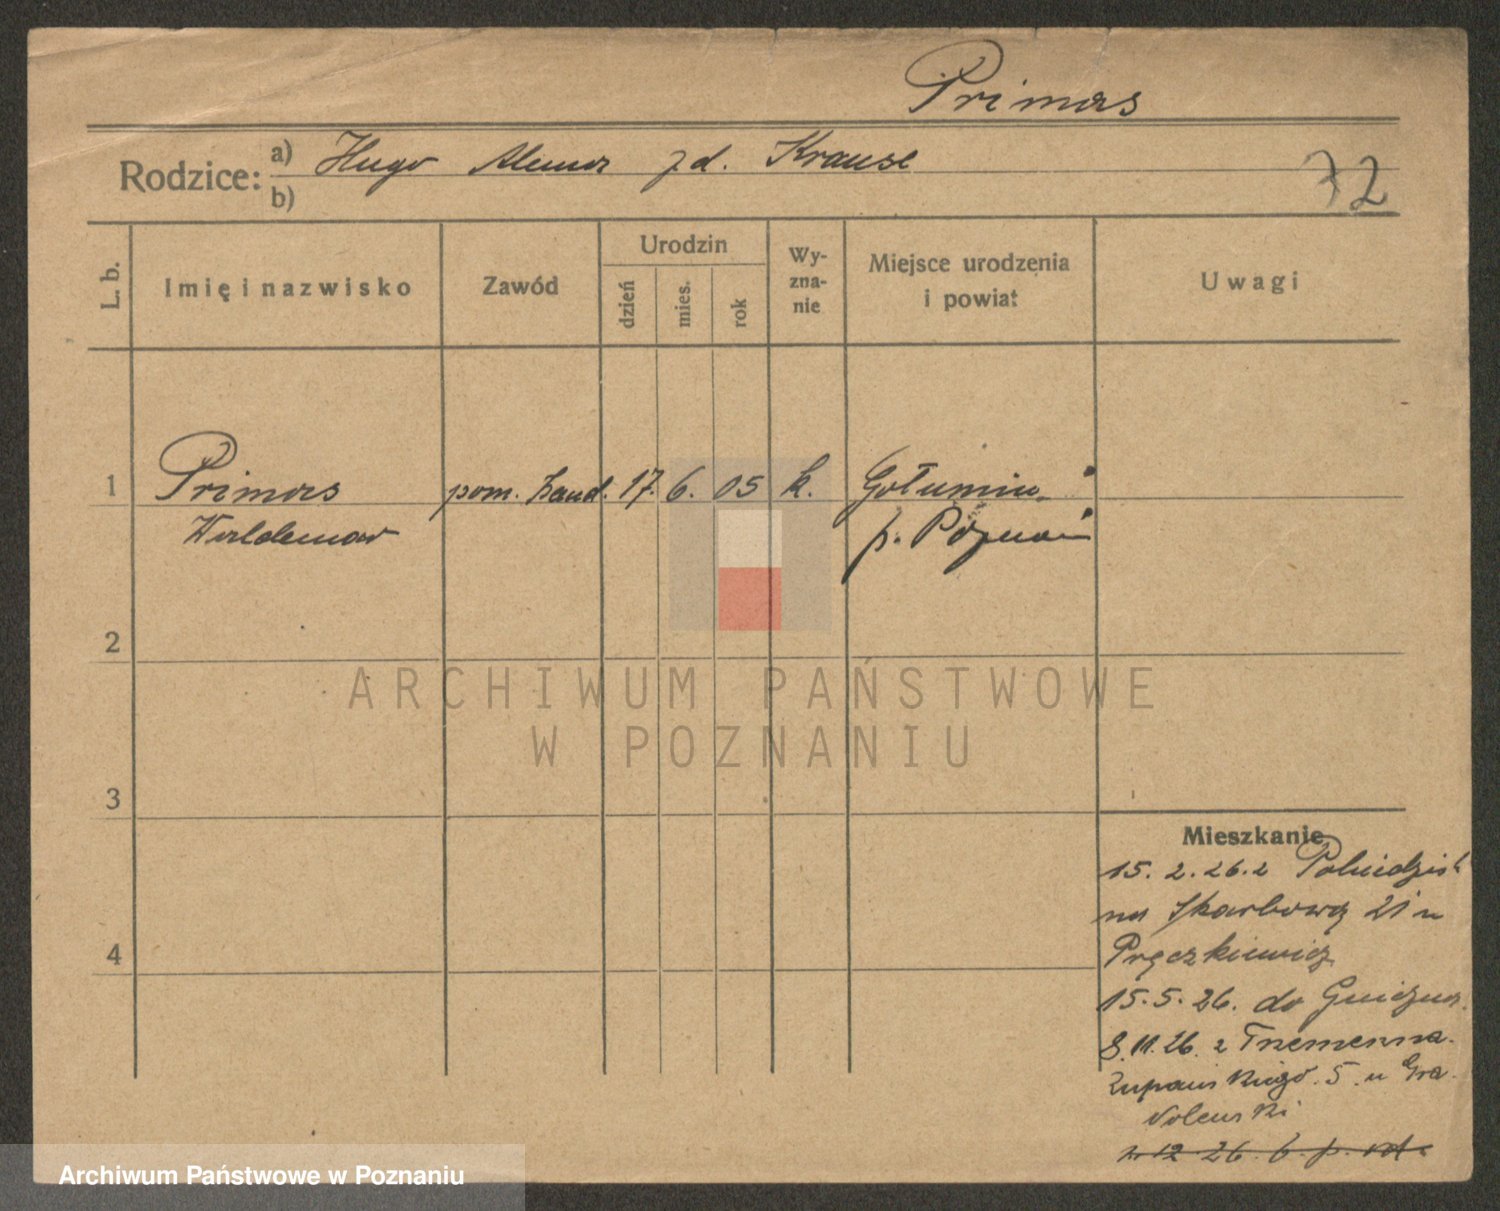 Primas
Rodzice: a) Hugo Alma z d. Krause
b)
72
L. b.
Imię i nazwisko
Zawód
Urodzin
dzień
mies.
rok
Wy-
zna-
nie
Miejsce urodzenia
i powiat
Uwagi
1 Primas pom. hand. 17. 6. 05 k.
Waldemar p. Poznań
2
3
4
Mieszkanie
15. 2. 26. z
na Skarbową 21 u
Pręczkiewicz
15. 5. 26. do Gniezna.
8. 11. 26. z Trzemeszna.
Żupańskiego. 5. u
12 26. b. p.
ARCHIWUM PAŃSTWOWE
W POZNANIU
Archiwum Państwowe w Poznaniu